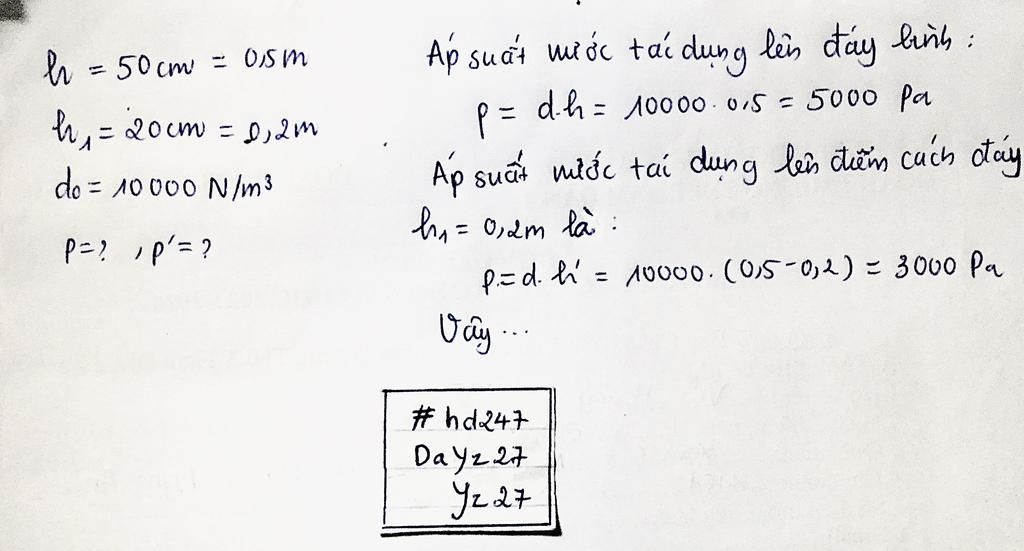 h = 50cm = 0,5m
h₁ = 20cm = 0,2m
d₀ = 10000 N/m³
p=? , p'=?
Áp suất nước tác dụng lên đáy bình :
p = d.h = 10000.0,5 = 5000 Pa
Áp suất nước tác dụng lên điểm cách đáy
h₁ = 0,2m là :
p = d.h' = 10000.(0,5-0,2) = 3000 Pa
Vậy ...
#hd247
DaYz27
Yz27